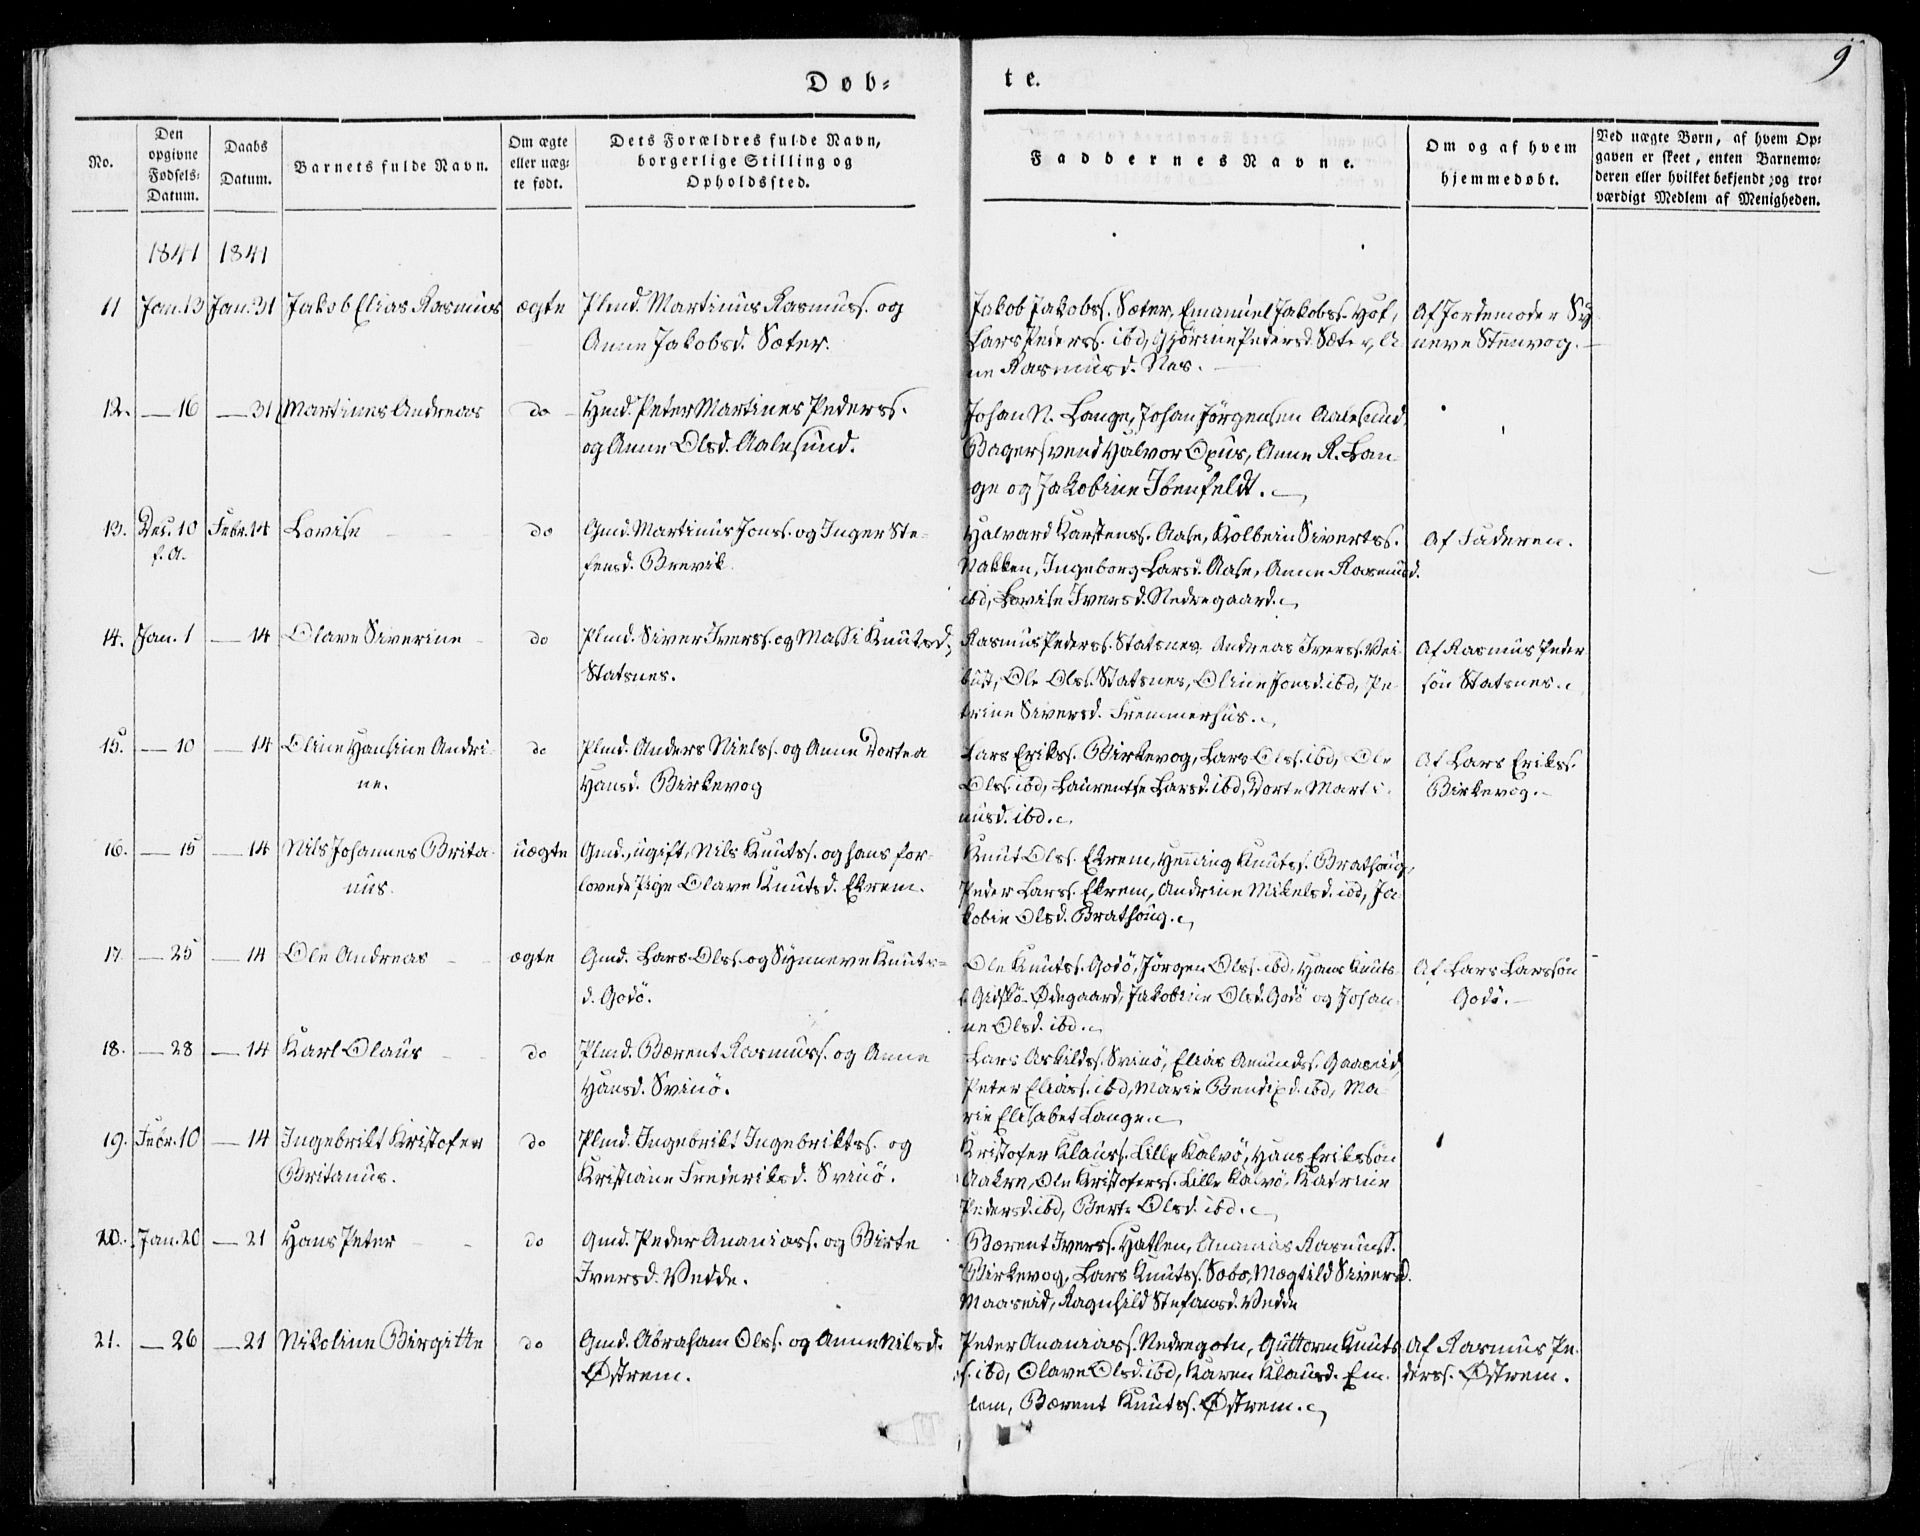 9
Döb-
te.
No.
Den opgivne Fødsels-Datum.
Daabs Datum.
Barnets fulde Navn.
Om ægte eller uæg-te født.
Dets Forældres fulde Navn, borgerlige Stilling og Opholdssted.
Faddernes Navne.
Om og af hvem hjemmedøbt.
Ved uægte Børn, af hvem Op-
gaven er skeet, enten Barnemo-
deren eller hvilket bekjendt, og tro-
værdigt Medlem af Menigheden.
1841 1841
11 Jan. 13 Jan. 31 Jakob Elias Rasmus ægte Plmd. Martinus Rasmuss. og
Anne Jakobsd. Sæter.
Jakob Jakobss. Sæter, Emanuel Jakobss. Hof,
Lars Pederss. ibd, Gjørine Pedersd. Sæter, Li-
ne Rasmusd. Nes.
Af Jordemoder Sy-
neve Stenvog.
12. — 16 — 31 Martines Andreas do Hmd. Peter Martines Pederss.
og Anne Olsd. Aalesund.
Johan N. Lange, Johan Jørgensen Aalesund,
Bagersvend Halvor Opus, Anne R. Lan-
ge og Jakobine Ibenfeldt.
13. Des. 10 Febr. 14 Lovise do Gmd. Martinus Jonss. og Inger Ste-
f. A.
fensd. Brevik
Halvard Karstenss. Aase, Kolbein Sivertss.
Nakken, Ingeborg Larsd. Aase, Anne Rasmusd.
ibd, Lovise Iversd. Nedregaard.
Af Faderen.
14. Jan. 1 — 14 Olave Siverine do Plmd. Siver Iverss. og Massi Knutsd.
Statsnes.
Rasmus Pederss. Statsnes, Andreas Iverss. Vei-
bust, Ole Olss. Statsnes, Oline Jonsd. ibd, Pe-
trine Siversd. Fremmerhus.
Af Rasmus Peder
søn Statsnes.
15. — 10 — 14 Oline Hansine Andri-
ne.
do Plmd. Anders Nielss. og Anne Dortea
Hansd. Birkevog
Lars Erikss. Birkevog, Lars Olss. ibd, Ole
Olss. ibd, Laurentse Larsd. ibd, Dorte Marti-
nusd. ibd.
Af Lars Erikss.
Birkevog.
16. — 15 — 14 Nils Johannes Brita-
nus.
uægte Gmd., ugift, Nils Knutss. og hans for-
lovede Pige Olave Knutsd. Ekrem.
Knut Olss. Ekrem, Henning Knutss. Brathoug,
Peder Larss. Ekrem, Andrine Mikelsd. ibd, Ja-
kobie Olsd. Brathoug.
17. — 25 — 14 Ole Andreas ægte Gmd. Lars Olss. og Synneve Knuts-
d. Godø.
Ole Knutss. Godø, Jørgen Olss. ibd, Hans Knuts-
s. Gidskø-Ødegaard, Jakobine Olsd. Godø og Johan-
ne Olsd. ibd.
Af Lars Larssøn
Godø.
18. — 28 — 14 Karl Olaus do Plmd. Bærent Rasmuss. og Anne
Hansd. Svinø.
Lars Askildss. Svinø, Elias Amundss. Gaaseid,
Peter Eliass. ibd, Marie Bendixd. ibd, Ma
rie Elisabet Lange.
19. Febr. 10 — 14 Ingebrikt Kristofer
Britanus.
do Plmd. Ingebrikt Ingebriktss. og
Kristiane Frederiksd. Svinø.
Kristofer Klauss. Lille Kalvø, Hans Erikssøn
Aakre, Ole Kristoferss. Lille Kalvø, Katrine
Pedersd. ibd, Berte Olsd. ibd.
20. Jan. 20 — 21 Hans Peter do Gmd. Peder Ananiass. og Birte
Iversd. Vedde.
Bærent Iverss. Hatlen, Ananias Rasmuss.
Birkevog, Lars Knutss. Søbø, Mægtild Siversd.
Maaseid, Ragnhild Stefansd. Vedde
21. — 26 — 21 Nikoline Birgitte do Gmd. Abraham Olss. og Anne Nilsd.
Østrem.
Peter Ananiass. Nedregotn, Guttorm Knuts
s. ibd, Olave Olsd. ibd, Karen Klausd. Em-
lem, Bærent Knutss. Østrem.
Af Rasmus Pe-
derss. Østrem.